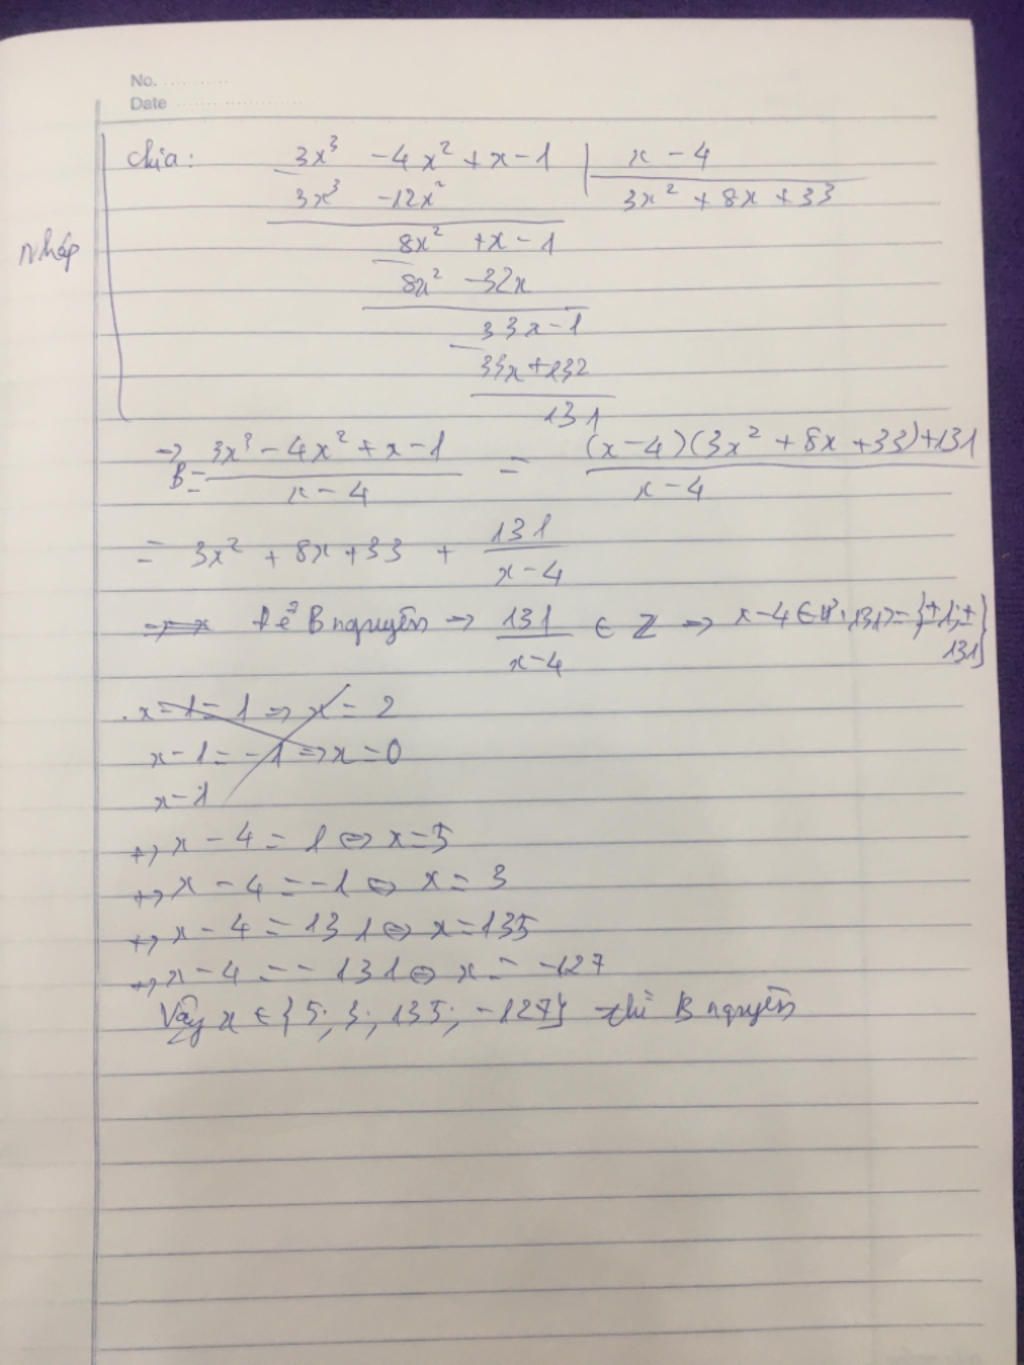 No.
Date
chia: 3x³ - 4x² + x - 1 | x - 4
3x³ - 12x² 3x² + 8x + 33
Nháp
8x² + x - 1
8x² - 32x
33x - 1
33x + 132
131
=> B = (3x³ - 4x² + x - 1)/(x - 4) = ((x - 4)(3x² + 8x + 33) + 131)/(x - 4)
= 3x² + 8x + 33 + 131/(x - 4)
Để B nguyên => 131/(x - 4) ∈ Z => x - 4 ∈ Ư(131) = {±1; ±131}
x - 1 = 1 => x = 2
x - 1 = -1 => x = 0
x - 1
+, x - 4 = 1 <=> x = 5
+, x - 4 = -1 <=> x = 3
+, x - 4 = 131 <=> x = 135
+, x - 4 = -131 <=> x = -127
Vậy x ∈ {5; 3; 135; -127} thì B nguyên